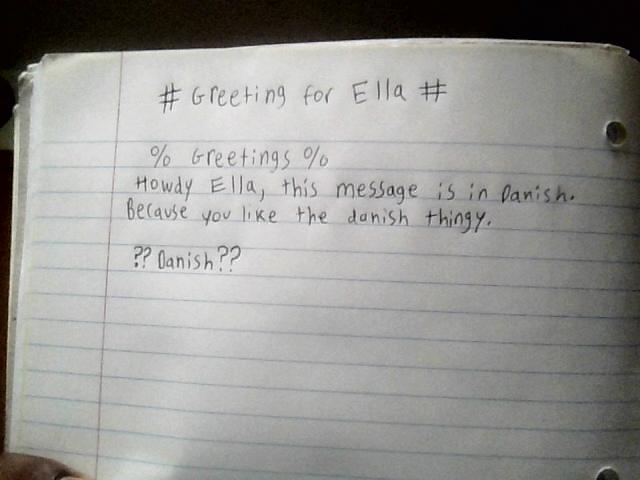 # Greeting for Ella #
% Greetings %
Howdy Ella, this message is in Danish.
Because you like the danish thingy.
?? Danish??